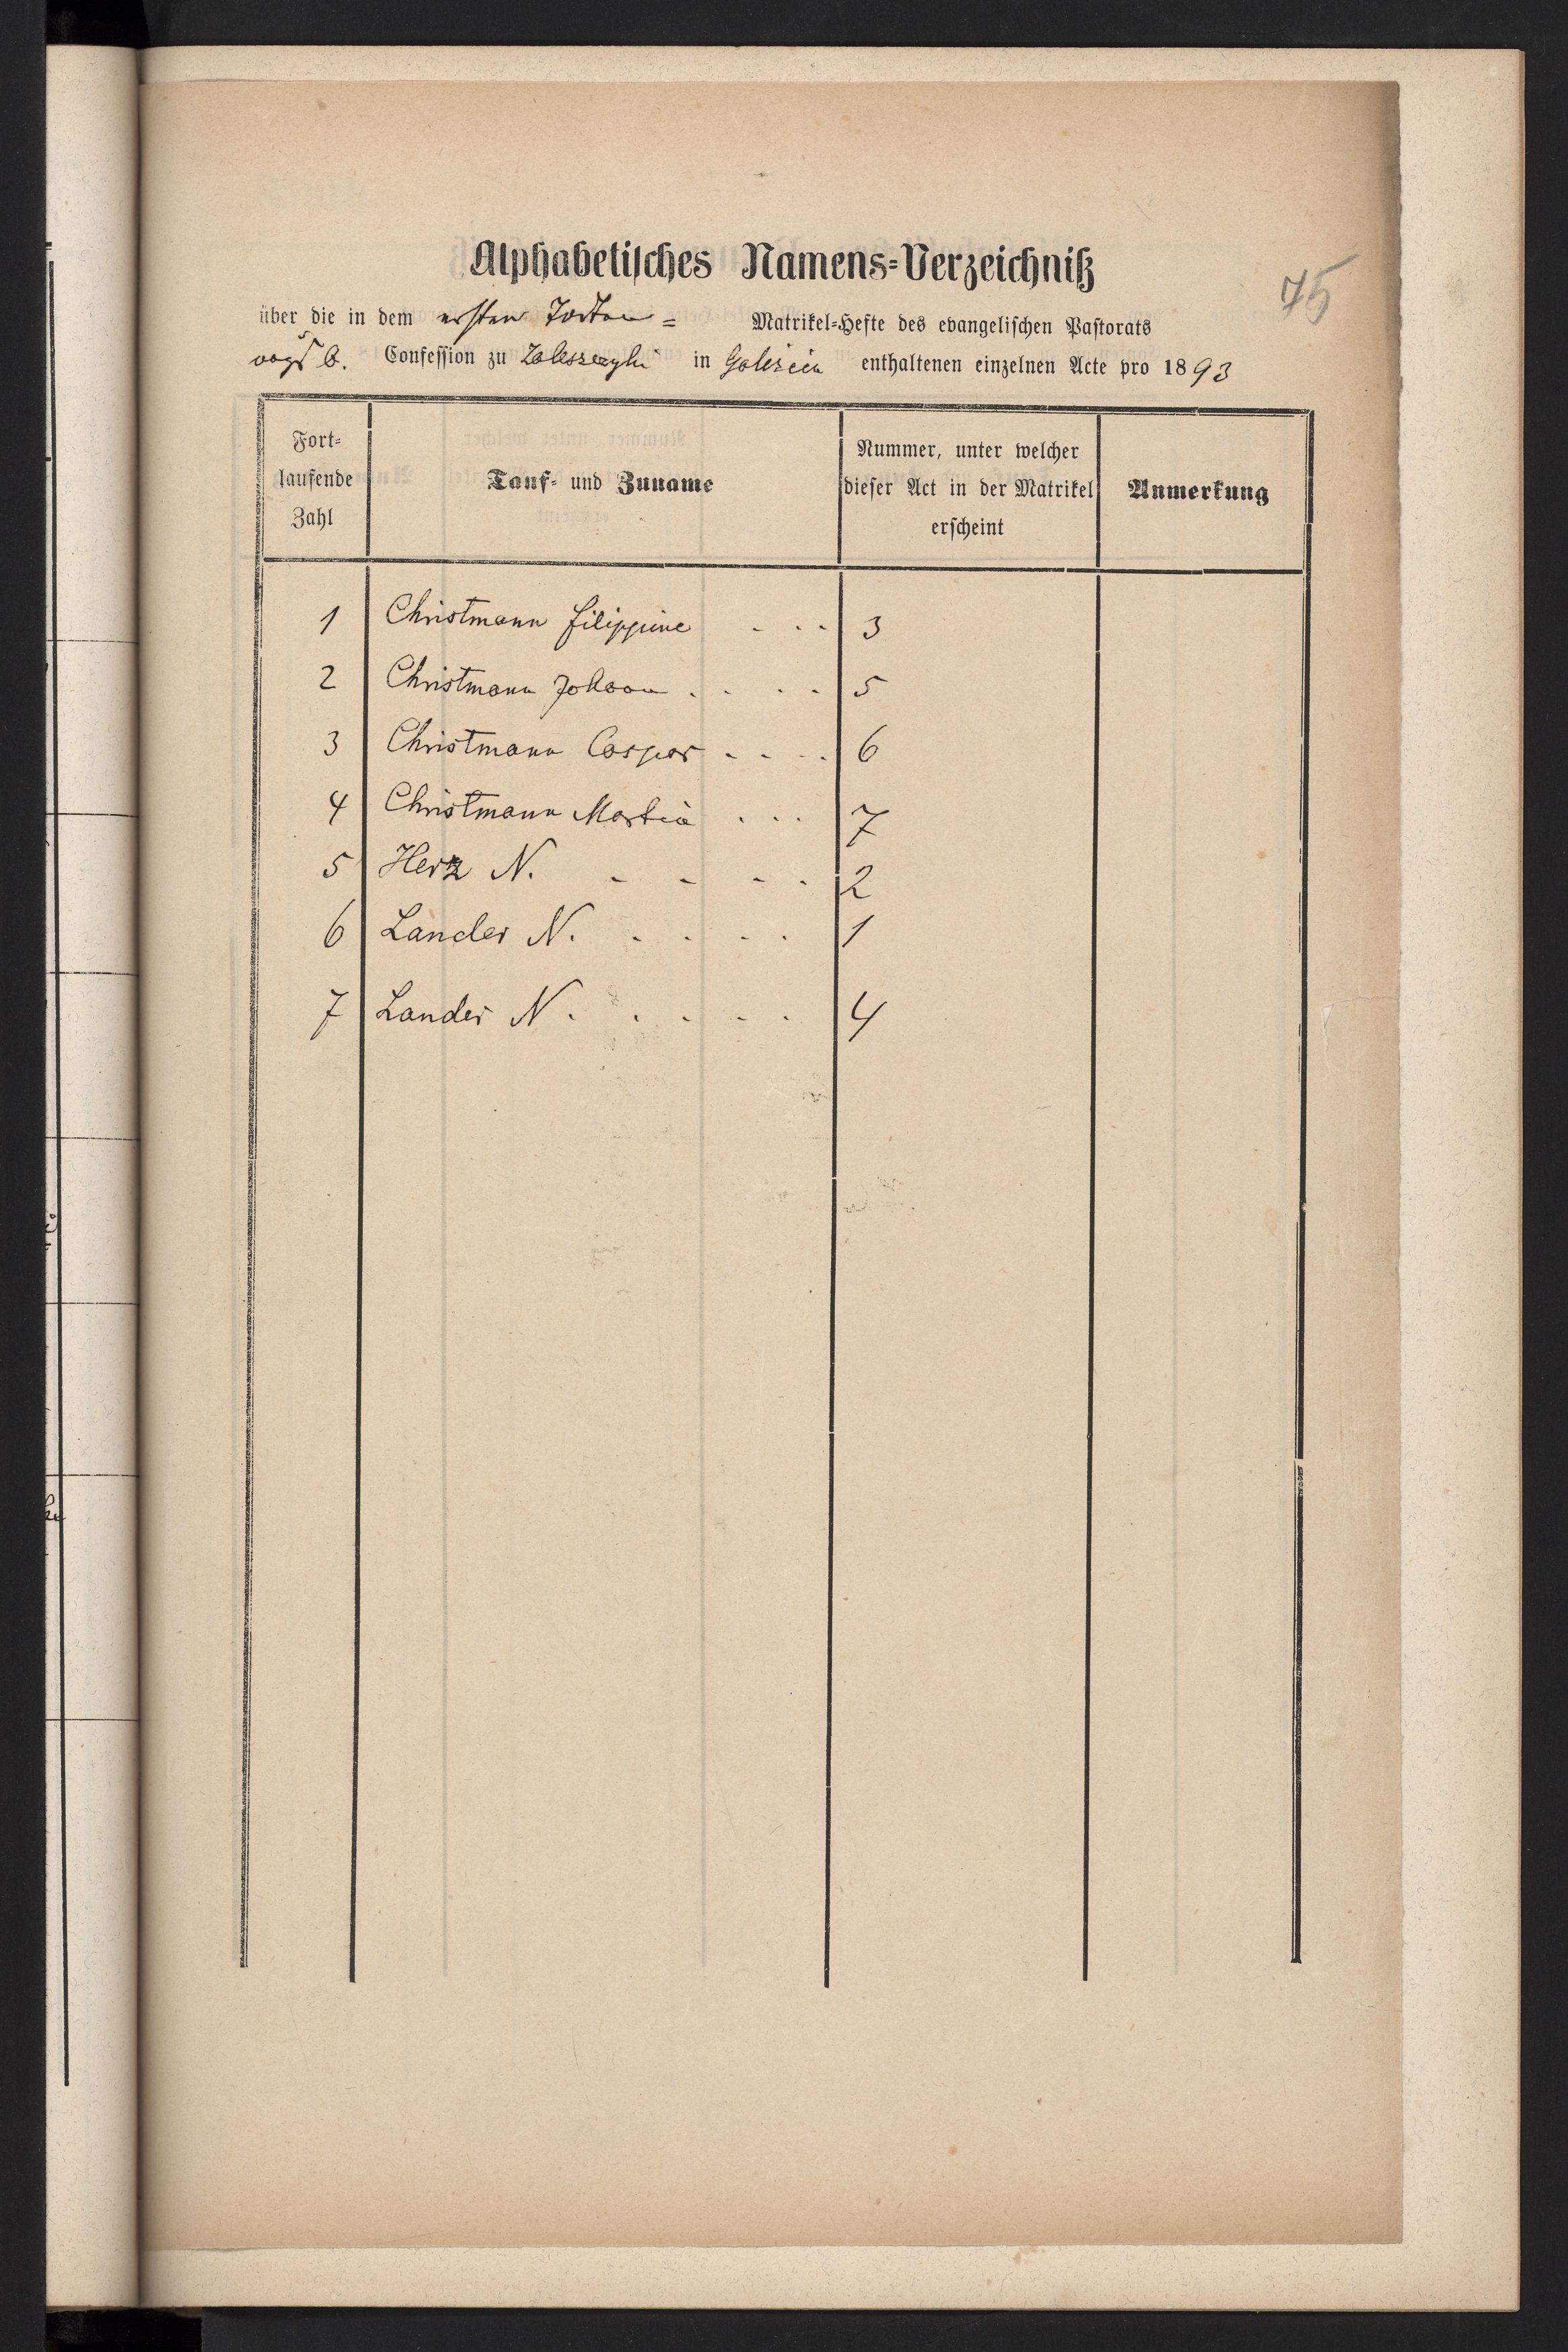 75
Alphabetisches Namens-Verzeichniß
über die in dem ersten Todten- Matrikel-Hefte des evangelischen Pastorats
augs B. Confession zu Zaleszczyki in Galizien enthaltenen einzelnen Acte pro 1893
Fort-
laufende
Zahl
Tauf- und Zuname
Nummer, unter welcher
dieser Act in der Matrikel
erscheint
Anmerkung
1 Christmann Filippine - - - 3
2 Christmann Johann . . . . 5
3 Christmann Caspar - - - . 6
4 Christmann Martin . . . 7
5 Herz N. - - - . 2
6 Lander N. . . . . 1
7 Lander N. . . . . 4